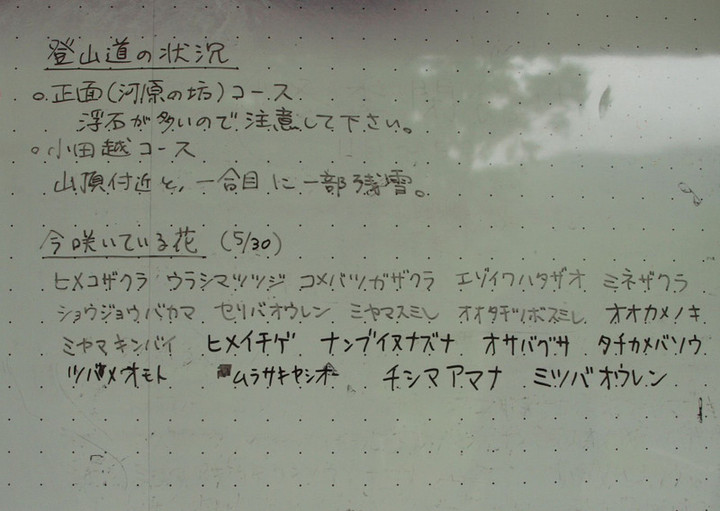 登山道の状況
○正面(河原の坊)コース
浮石が多いので注意して下さい。
○小田越コース
山頂付近と、一合目に一部残雪。
今咲いている花 (5/30)
ヒメコザクラ ウラシマツツジ コメバツガザクラ エゾイワハタザオ ミネザクラ
ショウジョウバカマ セリバオウレン ミヤマスミレ オオタチツボスミレ オオカメノキ
ミヤマキンバイ ヒメイチゲ ナンブイヌナズナ オサバグサ タチカメバソウ
ツバメオモト ムラサキヤシオ チシマアマナ ミツバオウレン